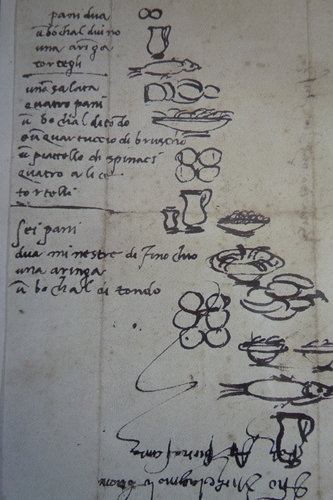 pani dua
ũ bochal duino
una aringa
tortegli
una salata
quatro pani
ũ bochal di tõdo
e ũ quartuccio di bruscho
ũ piattello di spinaci
quatro alice
tortelli
sei pani
dua minestre di finochio
una aringa
ũ bochal di tondo